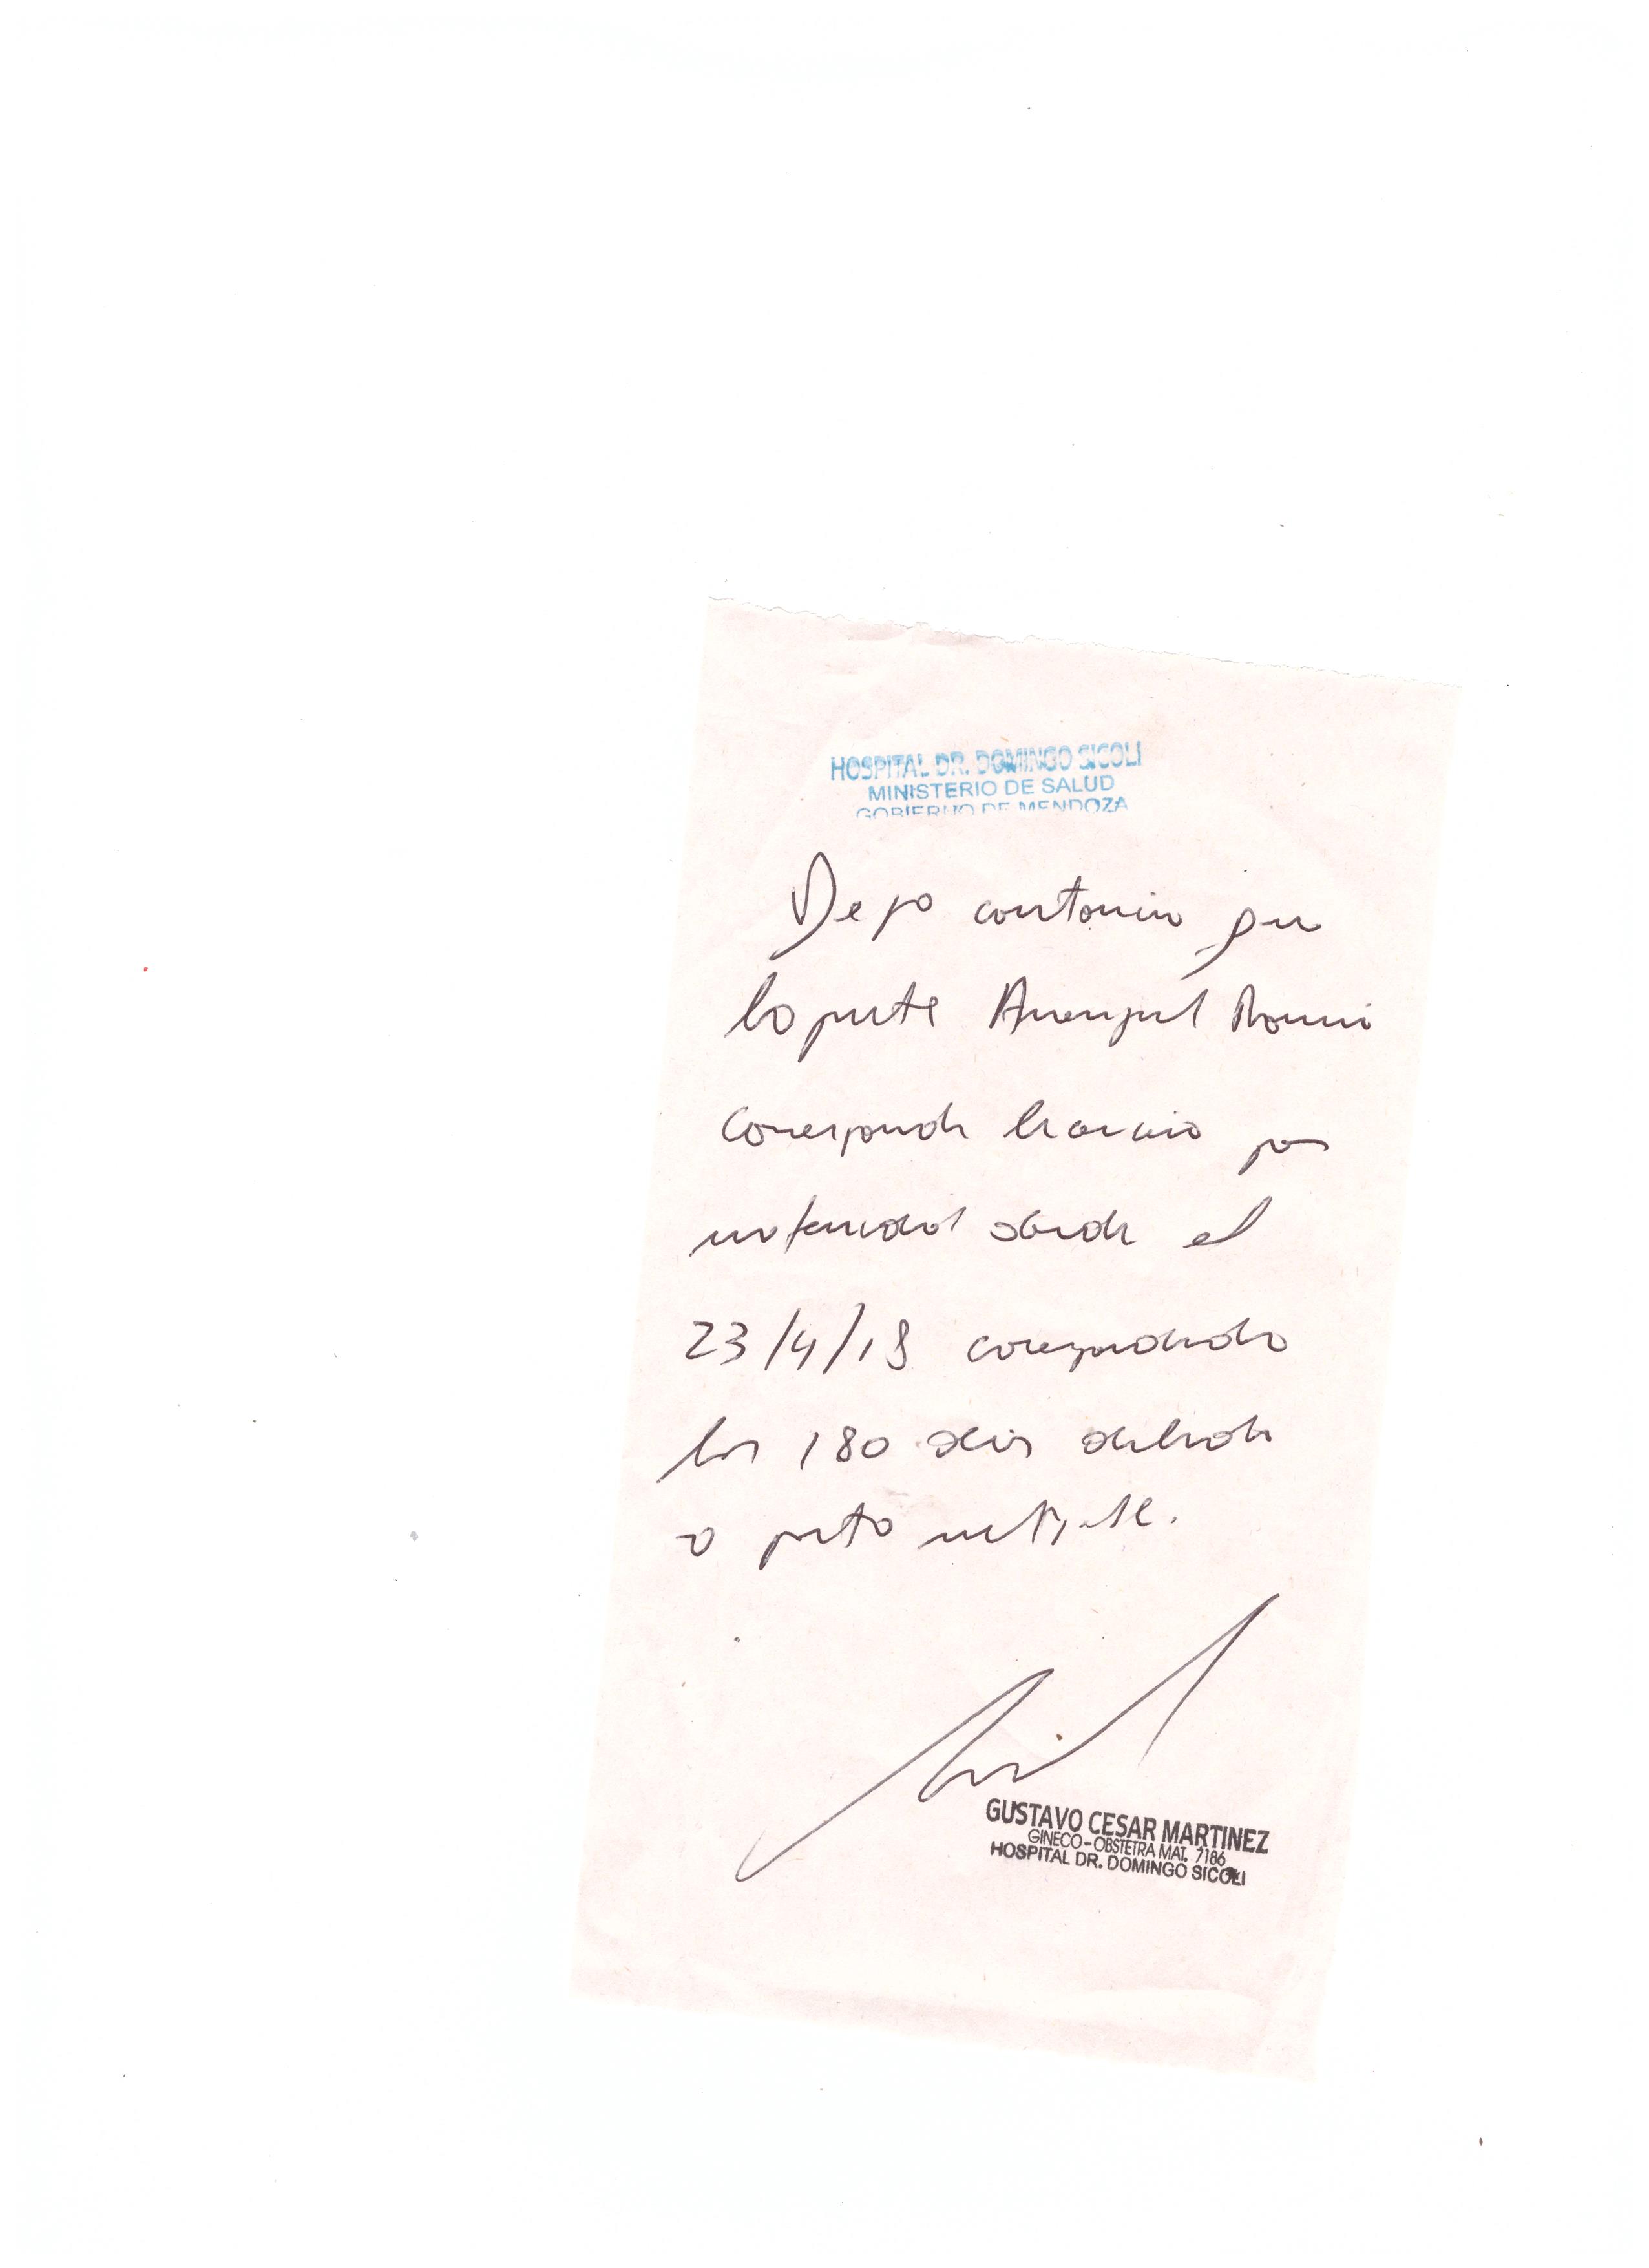 HOSPITAL DR. DOMINGO SICOLI
MINISTERIO DE SALUD
GOBIERNO DE MENDOZA
Dejo constancia que
la pcte
corresponde licencia por
maternidad desde el
23/4/18 correspondiendo
los 180 días
a parto
GUSTAVO CESAR MARTINEZ
GINECO-OBSTETRA MAT. 7186
HOSPITAL DR. DOMINGO SICOLI